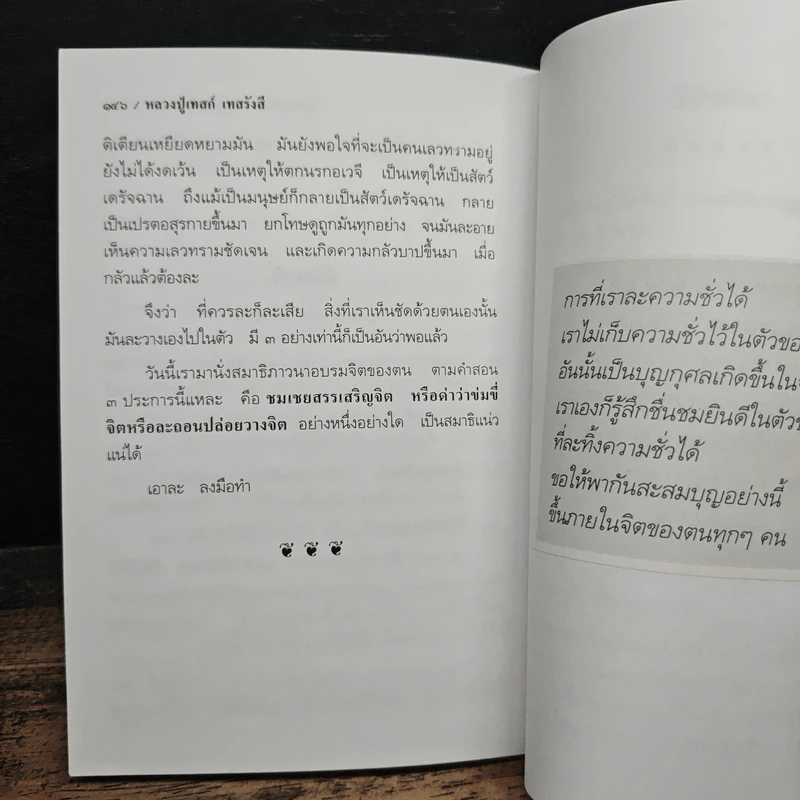 ๑๔๖ / หลวงปู่เทสก์ เทสรังสี
ติเตียนเหยียดหยามมัน มันยังพอใจที่จะเป็นคนเลวทรามอยู่
ยังไม่ได้งดเว้น เป็นเหตุให้ตกนรกอเวจี เป็นเหตุให้เป็นสัตว์
เดรัจฉาน ถึงแม้เป็นมนุษย์ก็กลายเป็นสัตว์เดรัจฉาน กลาย
เป็นเปรตอสุรกายขึ้นมา ยกโทษดูถูกมันทุกอย่าง จนมันละอาย
เห็นความเลวทรามชัดเจน และเกิดความกลัวบาปขึ้นมา เมื่อ
กลัวแล้วต้องละ
จึงว่า ที่ควรละก็ละเสีย สิ่งที่เราเห็นชัดด้วยตนเองนั้น
มันละวางเองไปในตัว มี ๓ อย่างเท่านี้ก็เป็นอันว่าพอแล้ว
วันนี้เรามานั่งสมาธิภาวนาอบรมจิตของตน ตามคำสอน
๓ ประการนี้แหละ คือ ชมเชยสรรเสริญจิต หรือด่าว่าข่มขี่
จิตหรือละถอนปล่อยวางจิต อย่างหนึ่งอย่างใด เป็นสมาธิแน่ว
แน่ได้
เอาละ ลงมือทำ
การที่เราละความชั่วได้
เราไม่เก็บความชั่วไว้ในตัวขอ
อันนั้นเป็นบุญกุศลเกิดขึ้นใน
เราเองก็รู้สึกชื่นชมยินดีในตัว
ที่ละทิ้งความชั่วได้
ขอให้พากันสะสมบุญอย่างนี้
ขึ้นภายในจิตของตนทุกๆ คน